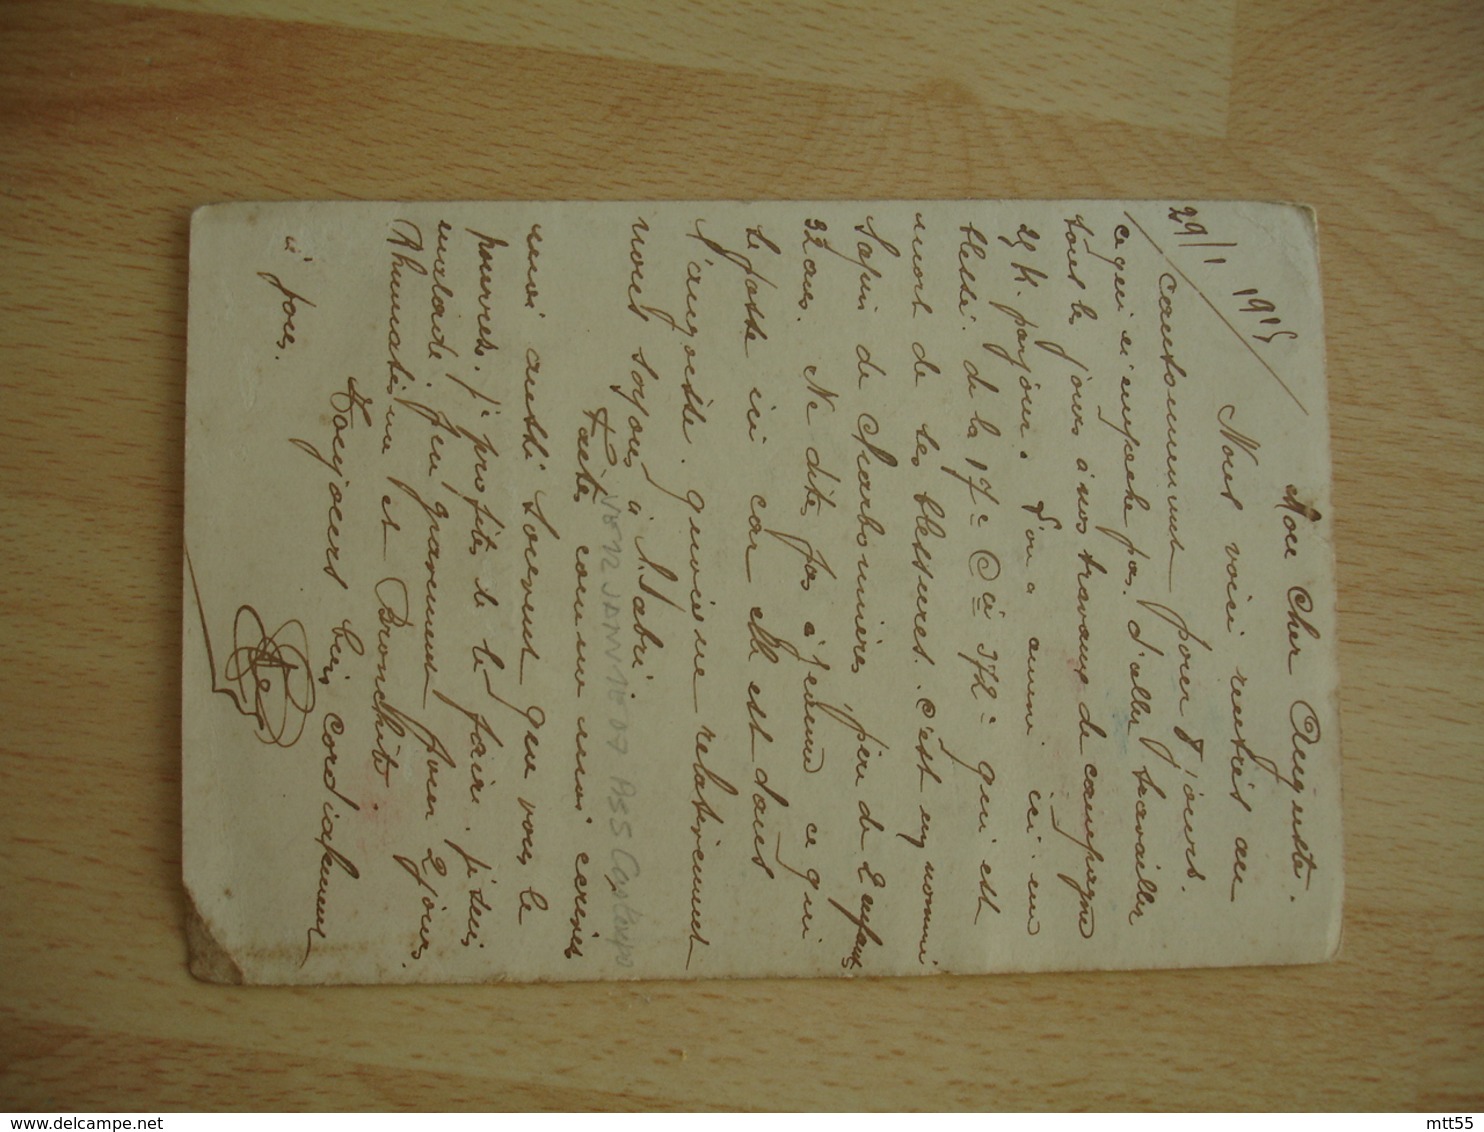 29/1 1915
Mon Cher Auguste.
Nous voici rentrés au
cantonnement pour 8 jours.
ce qui n'empeche pas d'aller travailler
tous les jours à nos travaux de campagne
24 k. par jour. L'on a amené ici un
blessé de la 17e Cie 372e qui est
mort de ses blessures. c'est un nommé
Sapin de Charbonnières père de 2 enfants
32 ans. Ne dite pas à Jeanne ce qui
se passe ici car elle est dans
l'angoisse. quoique relativement
nous soyons à l'abri
Faites comme moi ecrives
moi aussi souvent que vous le
pourres. je profite de le faire. je suis
malade peu gravement pour 2 jours.
Rhumatisme et Bronchite
Toujours bien cordialement
à vous.
1812 JANVIE 07 ASS
mtt55